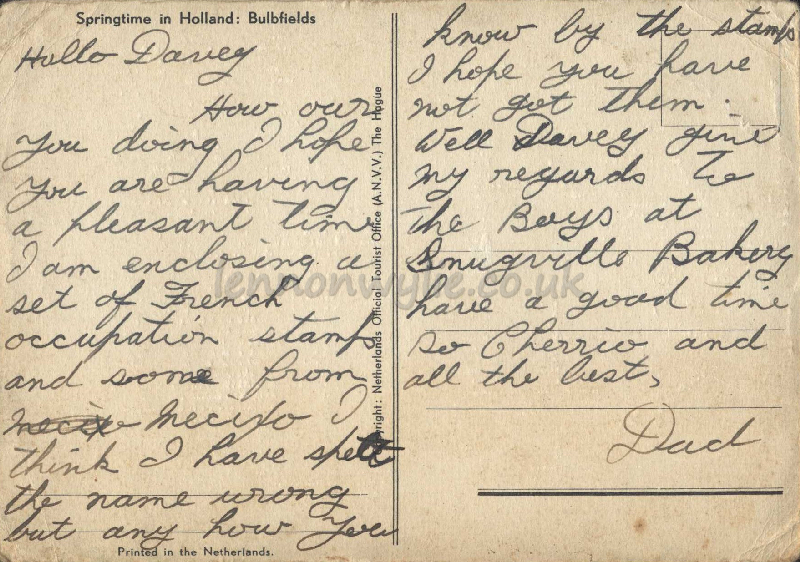 Springtime in Holland: Bulbfields
Hullo Davey
How our
you doing I hope
you are having
a pleasant time
I am enclosing a
set of French
occupation stamps
and some from
Mecixo Mecixo I
think I have spelt
the name wrong
but any how you
Printed in the Netherlands.
Copyright: Netherlands Official Tourist Office (A.N.V.V.) The Hague
know by the stamps
I hope you have
not got them.
Well Davey give
my regards to
the Boys at
Snugville Bakery
have a good time
so Cherrio and
all the best,
Dad
lennonwylie.co.uk